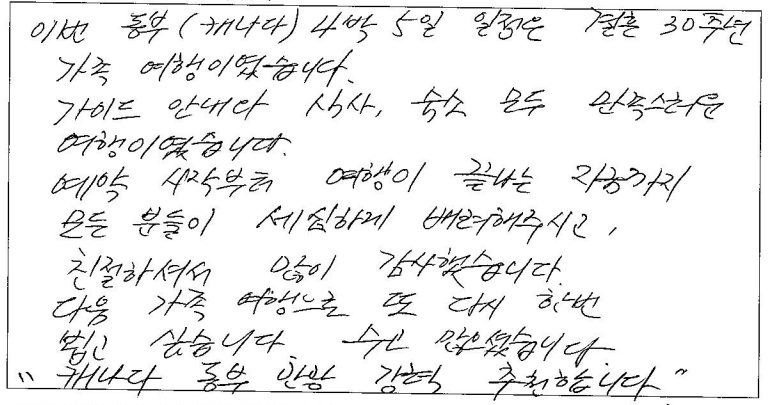 이번 동부 (캐나다) 4박 5일 일정은 결혼 30주년
가족 여행이였습니다.
가이드 안내와 식사, 숙소 모두 만족스러운
여행이였습니다.
예약 시작부터 여행이 끝나는 지금까지
모든 분들이 세심하게 배려해주시고,
친절하셔서 많이 감사했습니다.
다음 가족 여행으로 또 다시 한번
뵙고 싶습니다 수고 많으셨습니다.
"캐나다 동부 관광 강력 추천합니다"